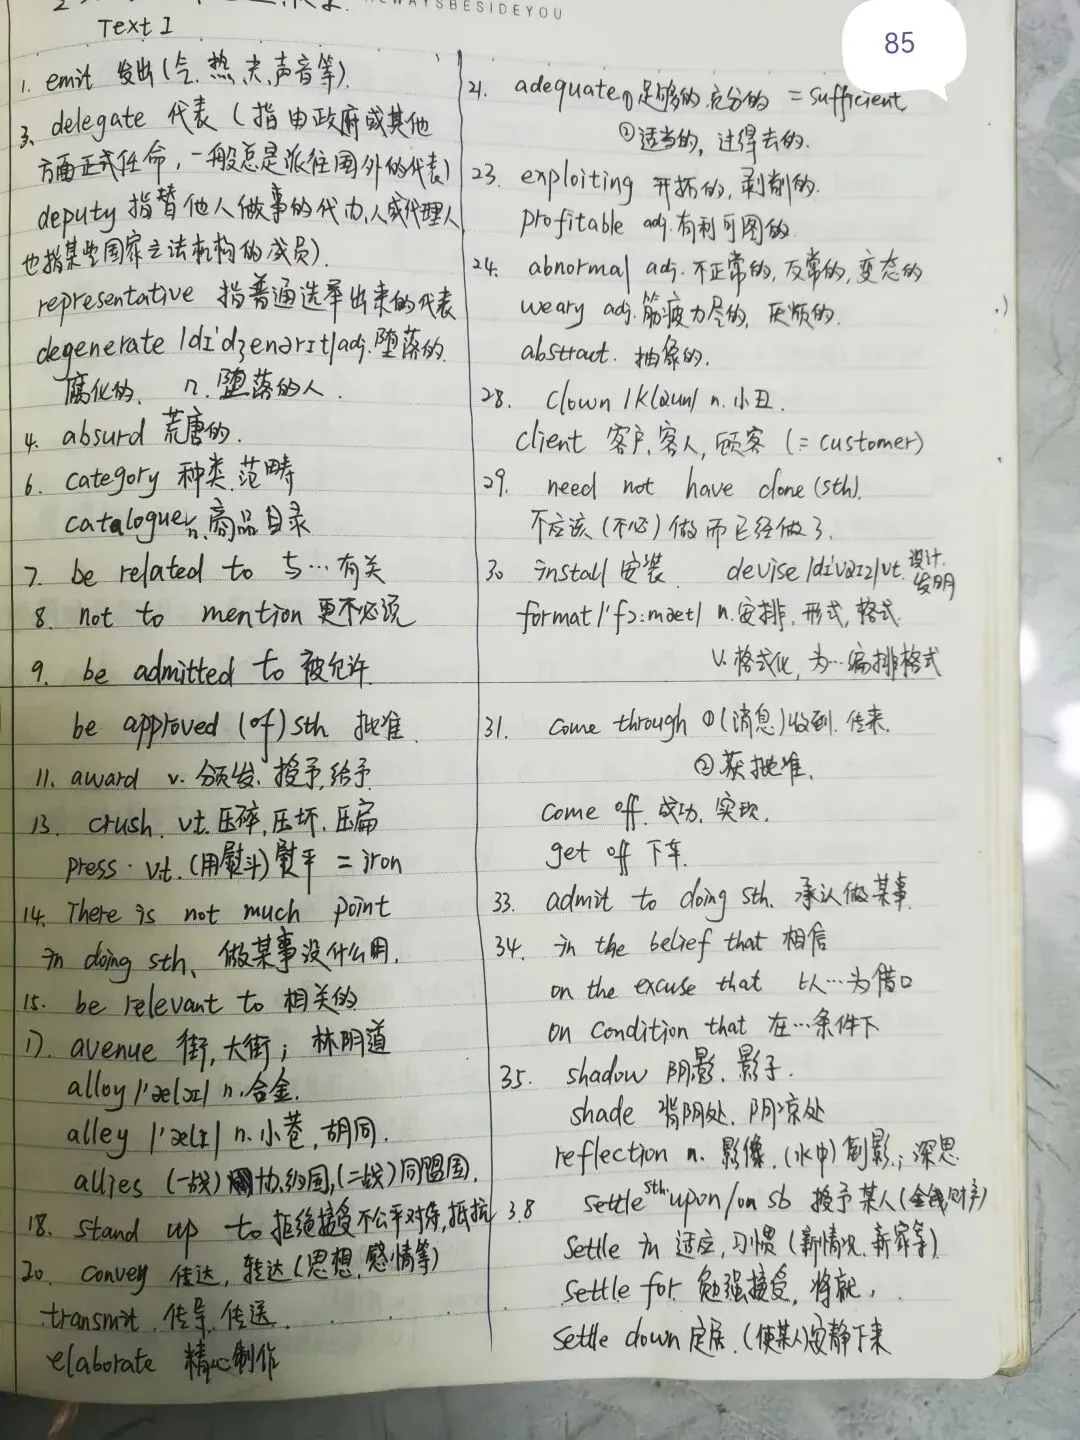 ALWAYSBESIDEYOU
85
Text I
1. emit 发出(气、热、光、声音等).
3. delegate 代表 (指由政府或其他
方面正式任命,一般总是派往国外的代表)
deputy 指替他人做事的代办人或代理人
也指某些国家立法机构的成员).
representative 指普通选举出来的代表
degenerate /dɪˈdʒenərɪt/ adj. 堕落的.
腐化的、 n. 堕落的人.
4. absurd 荒唐的.
6. category 种类.范畴
catalogue n. 商品目录
7. be related to 与…有关
8. not to mention 更不必说
9. be admitted to 被允许
be approved (of) sth 批准
11. award v. 颁发、授予,给予
13. crush. vt. 压碎,压坏.压扁
press. vt. (用熨斗)熨平 = iron
14. There is not much point
in doing sth、做某事没什么用.
15. be relevant to 相关的
17. avenue 街,大街; 林阴道
alloy /ˈælɔɪ/ n.合金.
alley /ˈælɪ/ n.小巷,胡同.
allies (一战)协约国,(二战)同盟国.
18. stand up to 拒绝接受不公平对待,抵抗
20. convey 传达,转达(思想.感情等)
transmit. 传导,传送.
elaborate 精心制作
21. adequate ①足够的.充分的 = sufficient
②适当的,过得去的.
23. exploiting 开拓的,剥削的.
profitable adj.有利可图的
24. abnormal adj. 不正常的,反常的,变态的
weary adj.筋疲力尽的, 厌烦的.
abstract. 抽象的.
28. clown /klaun/ n.小丑.
client 客户,客人,顾客 (= customer)
29. need not have done (sth).
不应该(不必)做而已经做了.
30 install 安装. devise /dɪˈvaɪz/ vt. 设计.
发明
format /ˈfɔ:mæt/ n.安排.形式,格式.
v.格式化,为…编排格式
31. come through ①(消息)收到.传来.
②获批准.
come off. 成功.实现.
get off 下车.
33. admit to doing sth. 承认做某事.
34. in the belief that 相信
on the excuse that 以…为借口
on condition that 在…条件下
35. shadow 阴影.影子.
shade 背阴处.阴凉处
reflection n. 影像.(水中)倒影; 深思
38 settle sth. upon/on sb 授予某人(金钱财产)
settle in 适应,习惯(新情况.新家等)
settle for. 勉强接受,将就.
settle down 定居.(使某人)安静下来